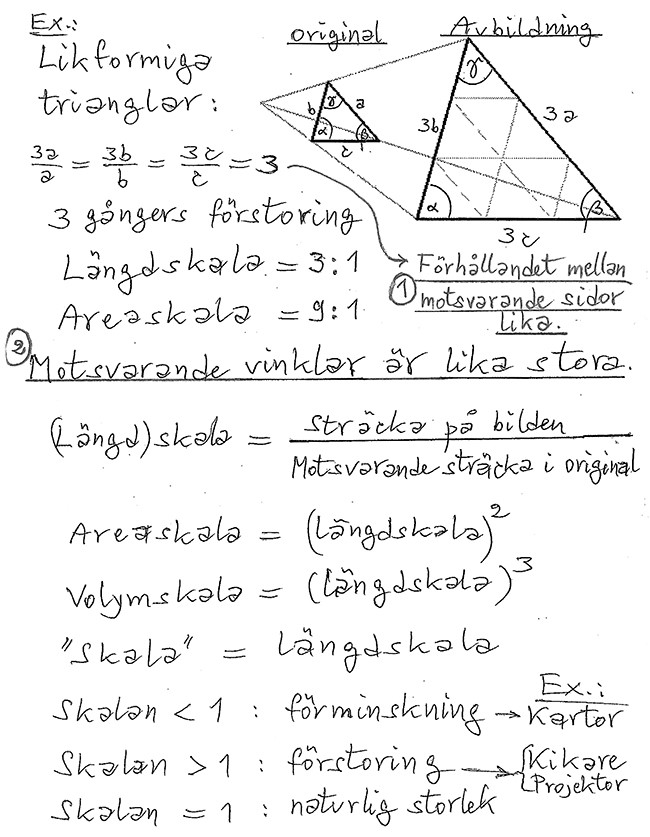 Ex.:
Likformiga
trianglar:
original
Avbildning
b γ a
α β
c
γ
3b 3a
α β
3c
3a/a = 3b/b = 3c/c = 3
3 gångers förstoring
Längdskala = 3:1
Areaskala = 9:1
→ Förhållandet mellan
① motsvarande sidor
lika.
② Motsvarande vinklar är lika stora.
(Längd)skala = Sträcka på bilden / Motsvarande sträcka i original
Areaskala = (längdskala)²
Volymskala = (längdskala)³
"Skala" = längdskala
Skalan < 1 : förminskning → Ex.: Kartor
Skalan > 1 : förstoring → { Kikare
Projektor
Skalan = 1 : naturlig storlek